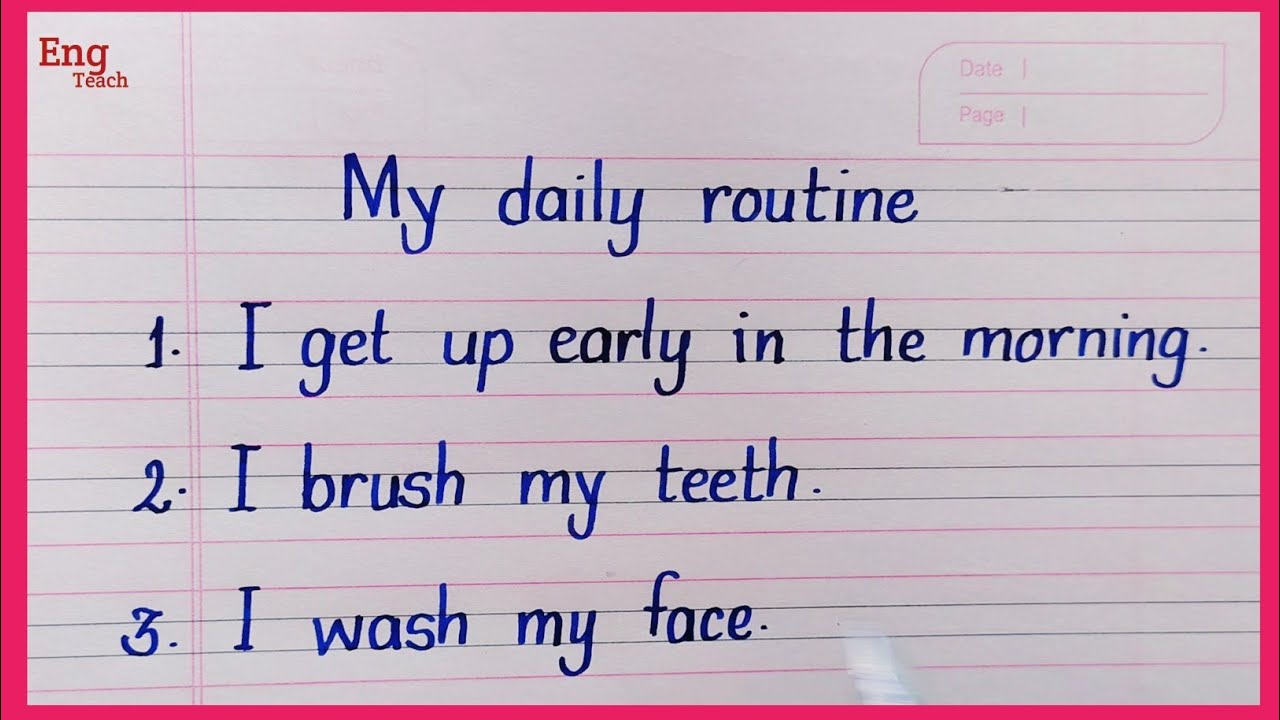 Eng
Teach
Date |
Page |
My daily routine
1. I get up early in the morning.
2. I brush my teeth.
3. I wash my face.